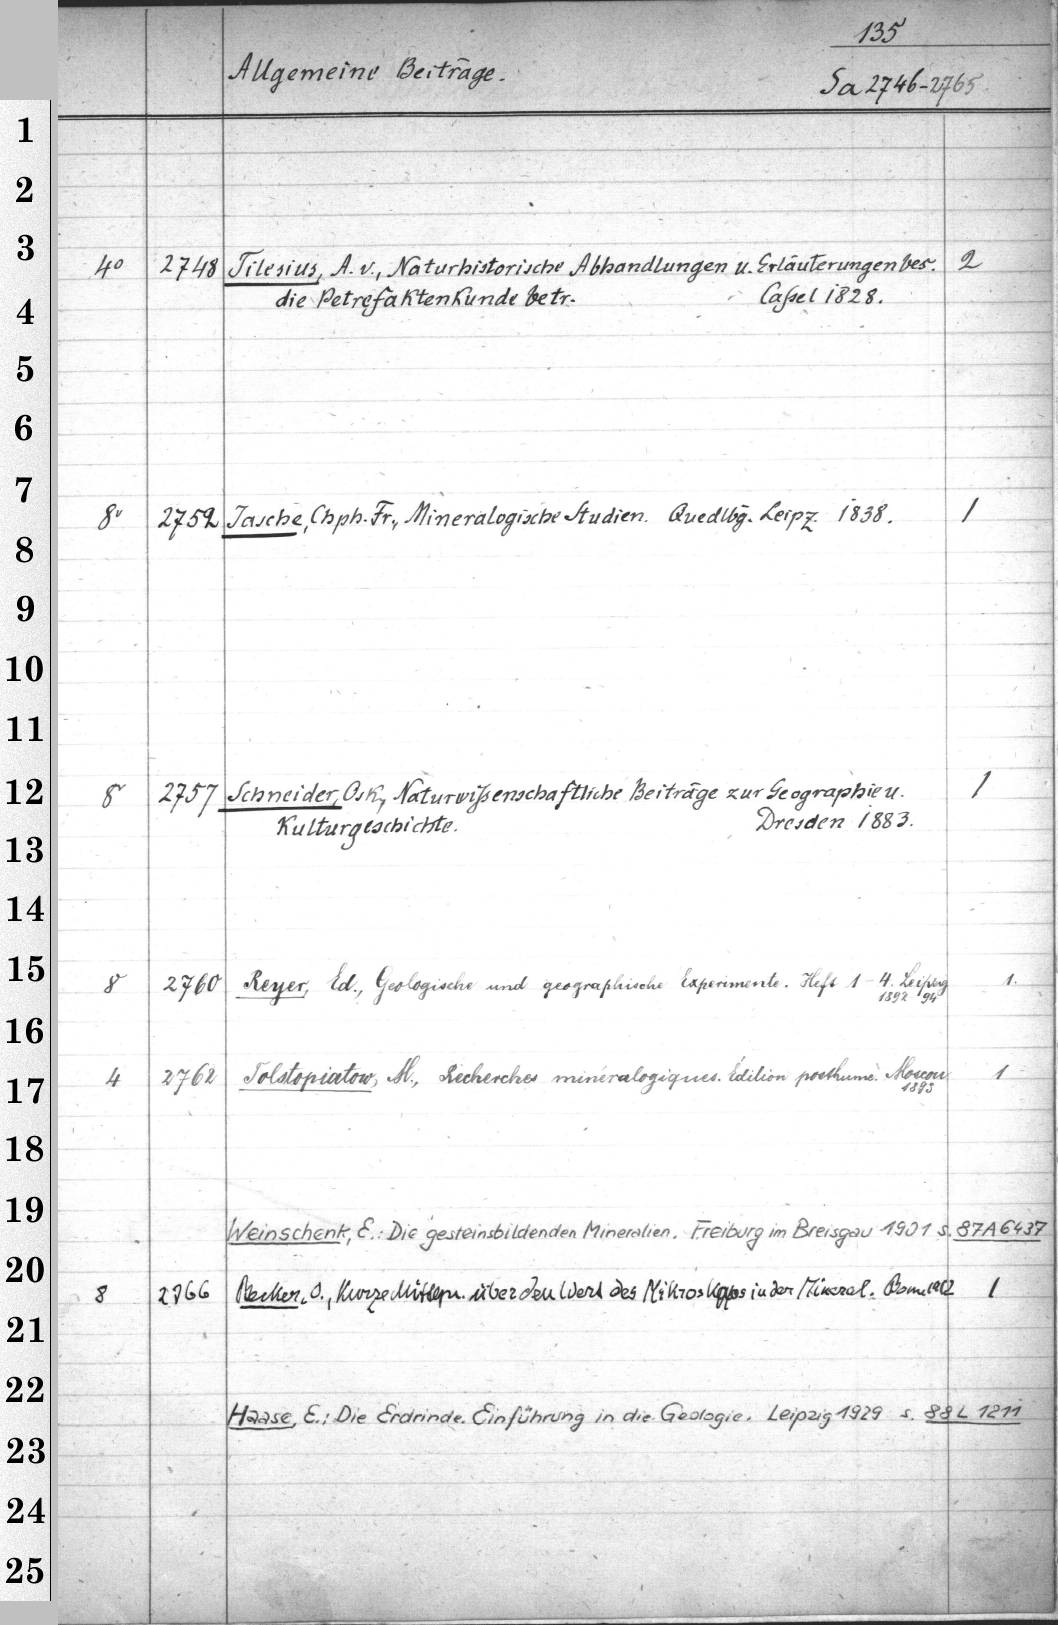 135
Allgemeine Beiträge.
Sa 2746-2765.
1
2
3
4° 2748 Tilesius, A. v., Naturhistorische Abhandlungen u. Erläuterungen bes. 2
die Petrefaktenkunde betr. Caßel 1828.
4
5
6
7
8° 2752 Tasche, Chph. Fr., Mineralogische Studien. Quedlbg. Leipz. 1838. 1
8
9
10
11
12 8° 2757 Schneider, Osk., Naturwißenschaftliche Beiträge zur Geographie u. 1
Kulturgeschichte. Dresden 1883.
13
14
15
8 2760 Reyer, Ed., Geologische und geographische Experimente. Heft 1-4. Leipzig 1.
1892 94
16
17 4 2762 Tolstopiatow, M., Recherches minéralogiques. Edition posthume. Moscou 1
1893
18
19
Weinschenk, E.: Die gesteinsbildenden Mineralien. Freiburg im Breisgau 1901 s. 87A6437
20
8 2766 Becker, O., Kurze Mitteln. über den Wert des Mikroskops in der Mineral. Bonn 1
21
22
Haase, E.: Die Erdrinde. Einführung in die Geologie. Leipzig 1929 s. 88 L 1211
23
24
25